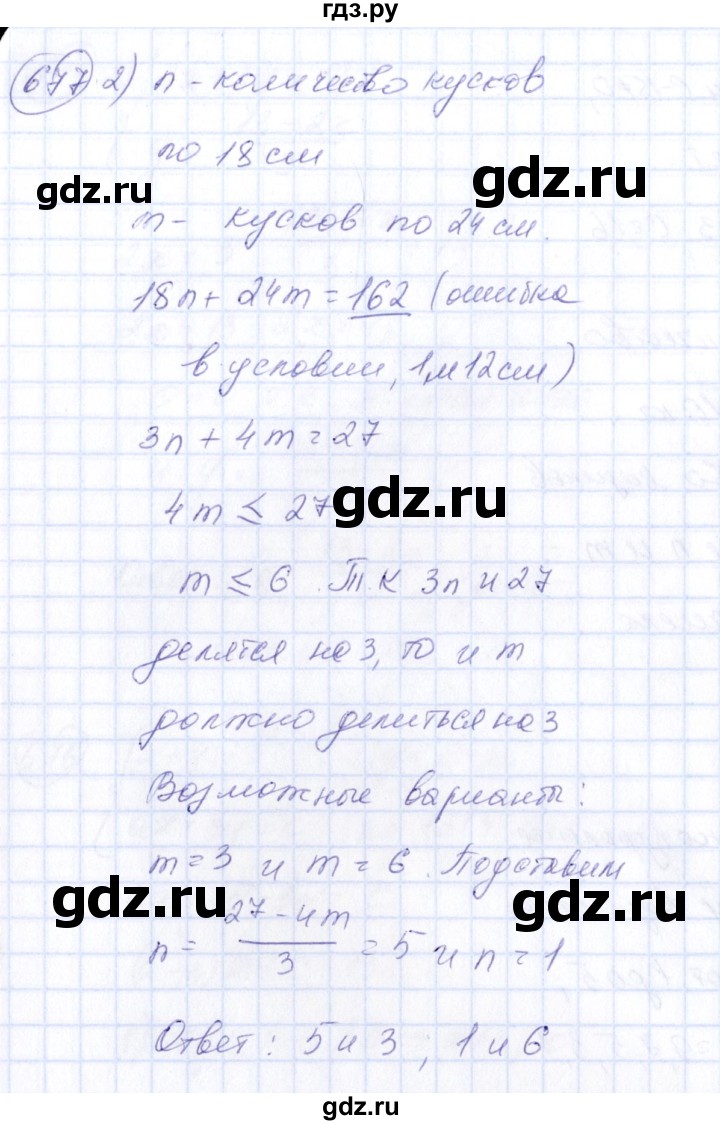 гдз.ру
677 2) n - количество кусков
по 18 см
gdz.ru gdz.ru
m - кусков по 24 см.
18n + 24m = 162 (ошибка
в условии, 1м12см)
3n + 4m = 27
4m ≤ 27
gdz.ru
m ≤ 6. Т.к 3n и 27
делятся на 3, то и m
должно делиться на 3
Возможные варианты:
m = 3 и m = 6. Подставим
gdz.ru gdz.ru
n = 27 - 4m / 3 = 5 и n = 1
Ответ: 5 и 3; 1 и 6
gdz.ru